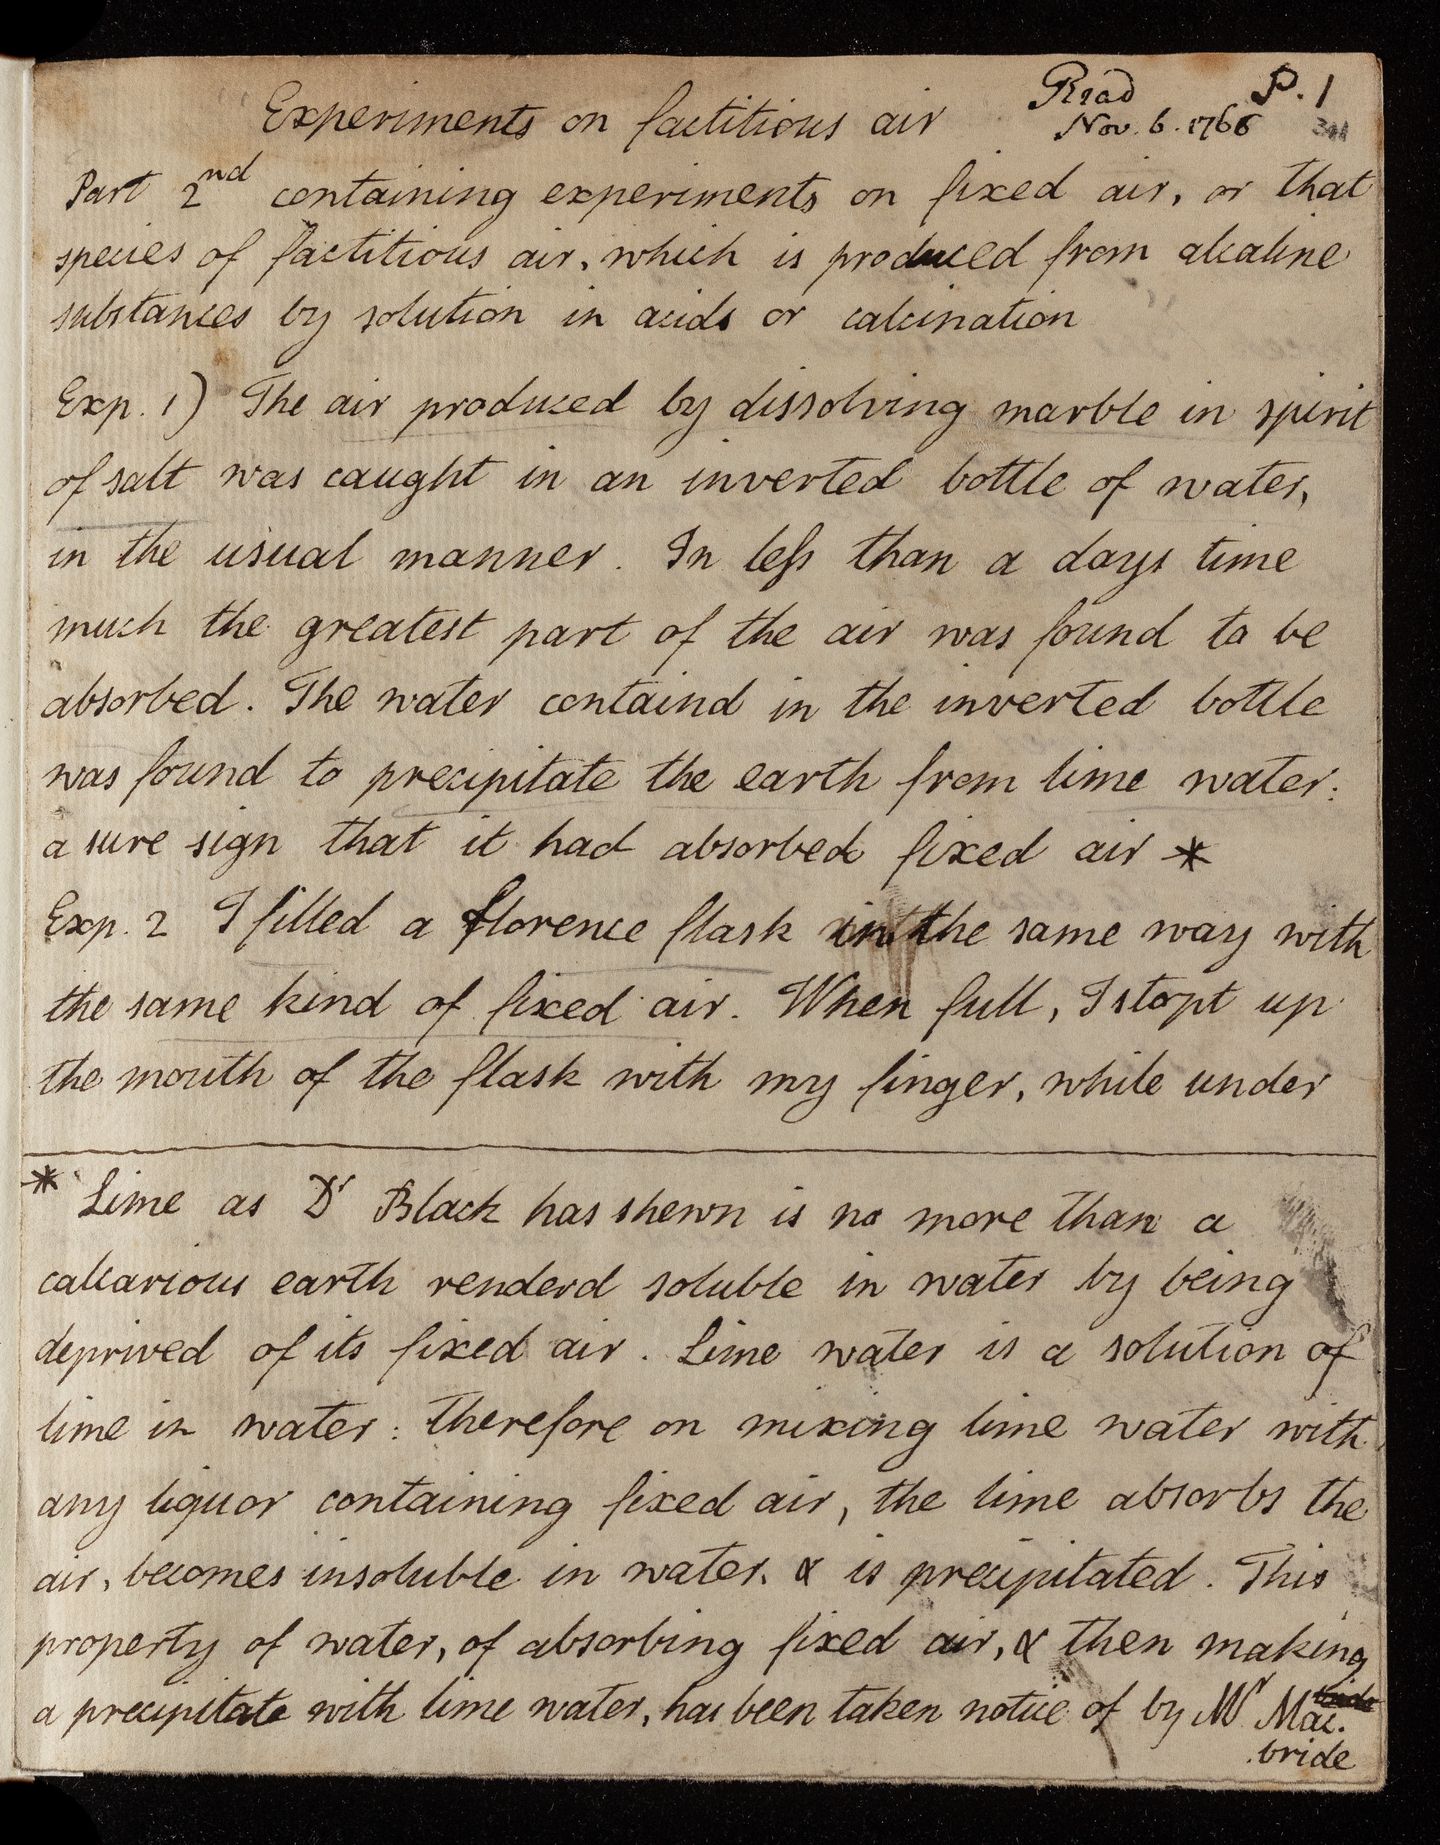 Experiments on factitious air
Read P. 1
Nov. 6. 1766
Part 2nd containing experiments on fixed air, or that
species of factitious air, which is produced from alcaline
substances by solution in acids or calcination
Exp. 1) The air produced by dissolving marble in spirit
of salt was caught in an inverted bottle of water,
in the usual manner. In less than a days time
much the greatest part of the air was found to be
absorbed. The water containd in the inverted bottle
was found to precipitate the earth from lime water:
a sure sign that it had absorbed fixed air *
Exp. 2 I filled a florence flask in the same way with
the same kind of fixed air. When full, I stopt up
the mouth of the flask with my finger, while under
* Lime as Dr Black has shewn is no more than a
calcarious earth renderd soluble in water by being
deprived of its fixed air. Lime water is a solution of
lime in water: therefore on mixing lime water with
any liquor containing fixed air, the lime absorbs the
air, becomes insoluble in water, & is precipitated. This
property of water, of absorbing fixed air, & then making
a precipitate with lime water, has been taken notice of by Mr Mac.
bride